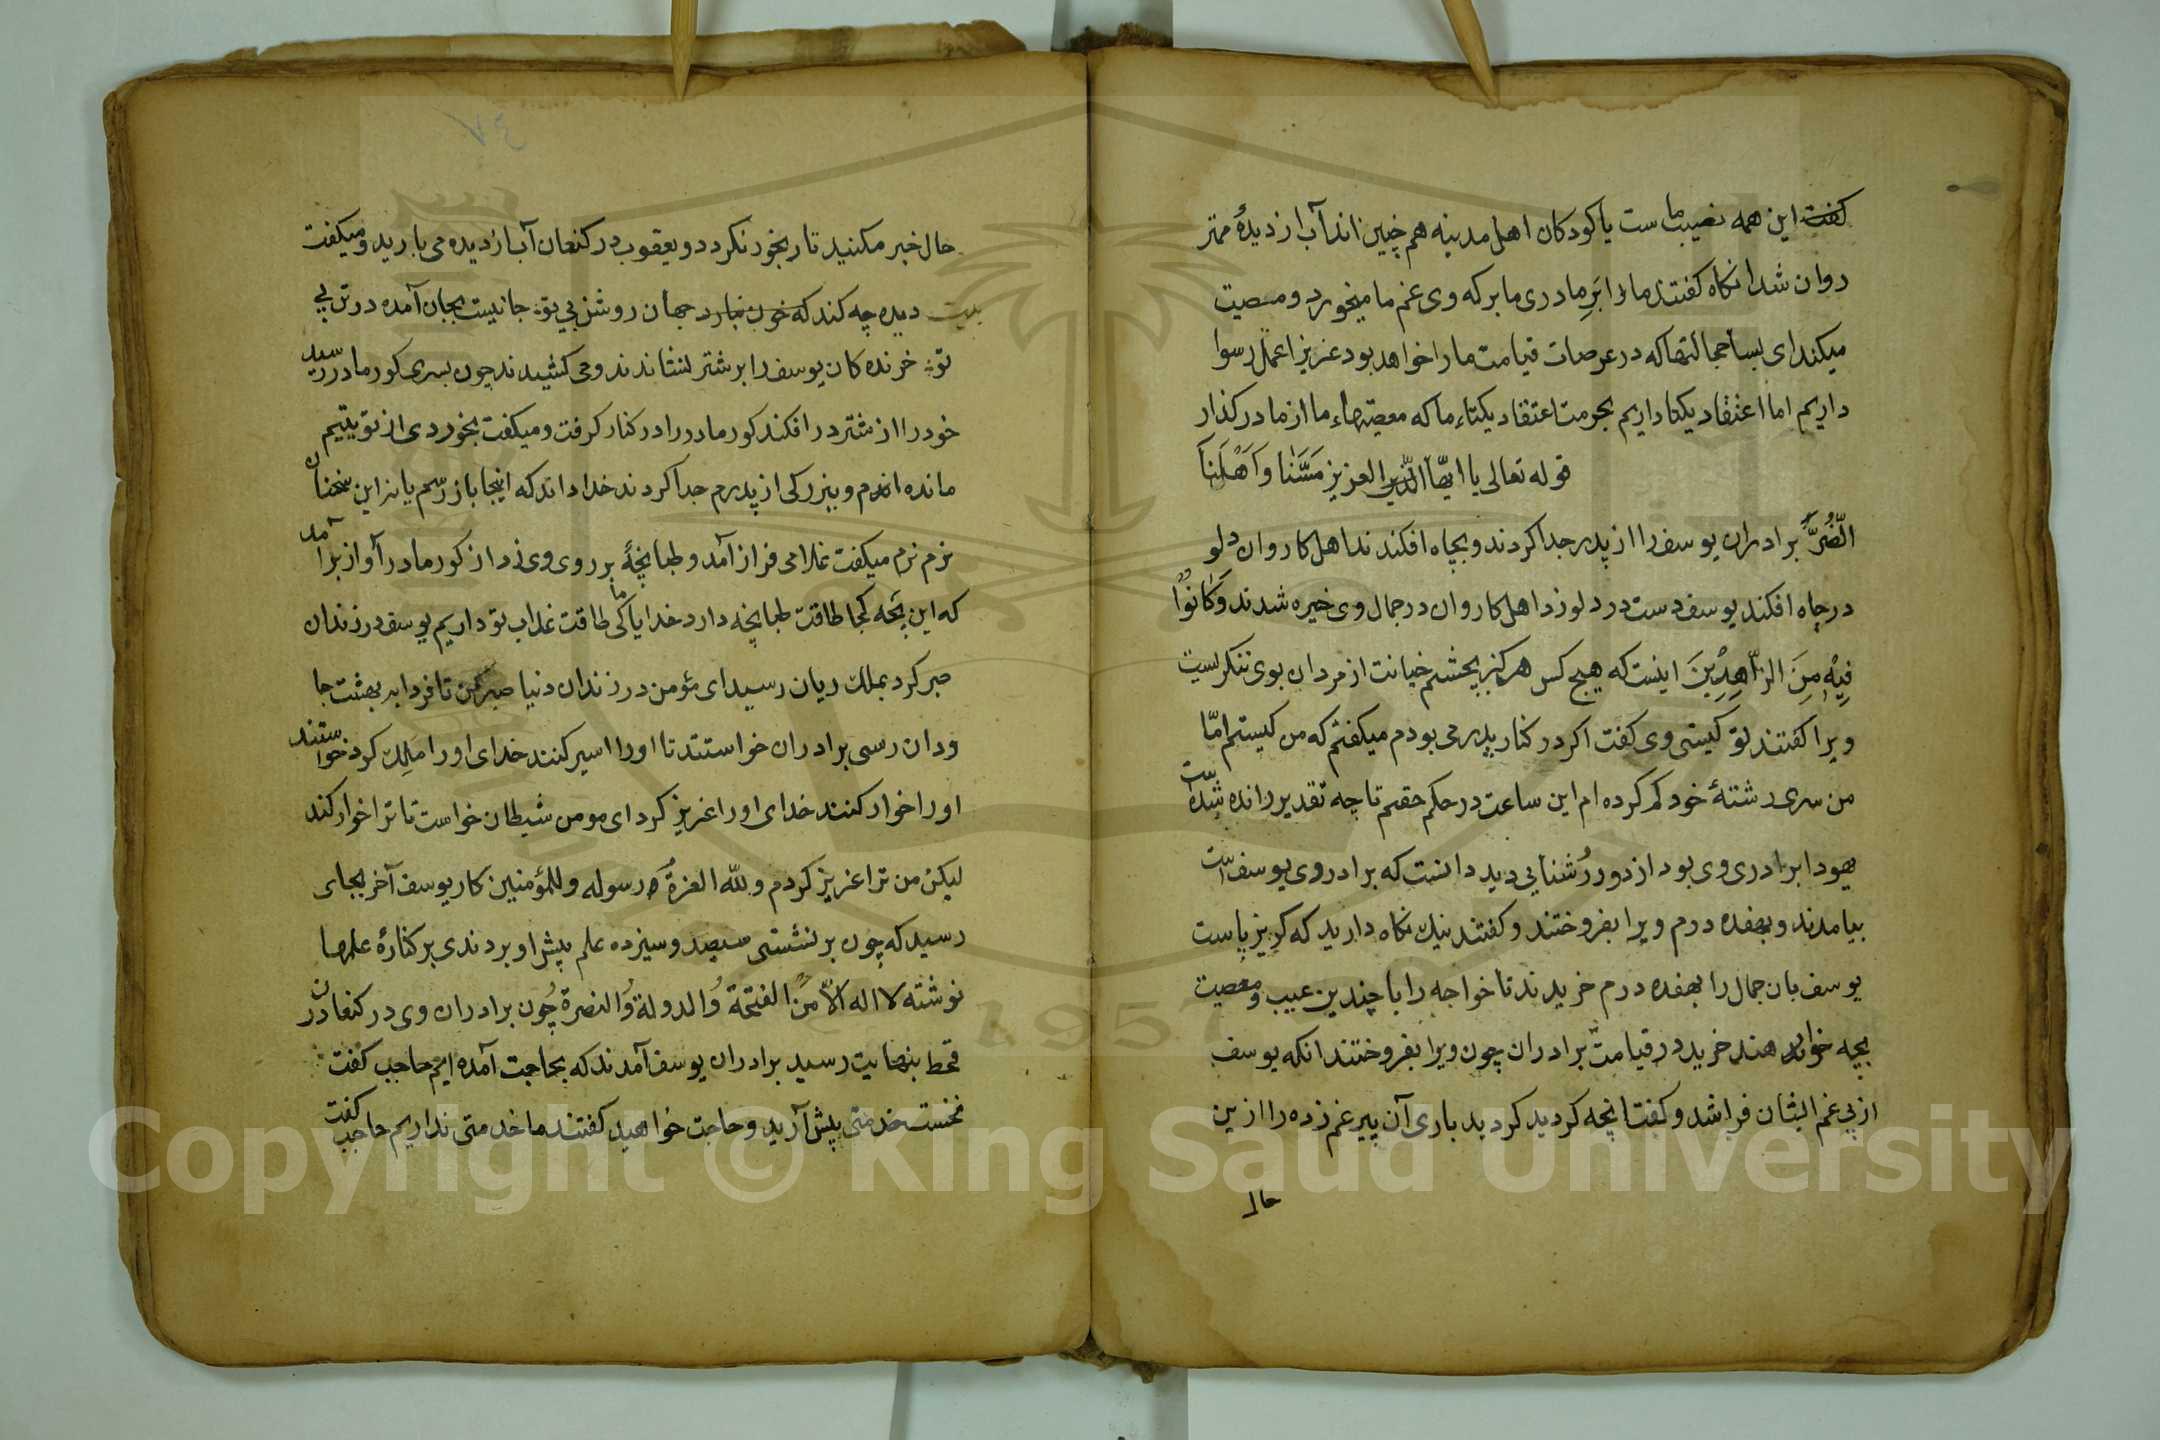 کفت این همه نصیب ماست یا کودکان اهل مدینه هم چنین اند آب از دیدهٔ مهتر
روان شد انکاه کفتند ما را بَرِ مادری ما بر که وی غم ما میخورد و مصیت
میکند ای بسا خجالتها که در عرصات قیامت ما را خواهد بود عزیزا عمل رسوا
داریم اما اعتقاد یکتا داریم بحرمت اعتقاد یکتاء ما که معصیتهاء ما از ما در کذار
قوله تعالی یا ایّها العزیز مَسَّنَا وَاَهْلَنَا
الضُرُّ برادران یوسف را از پدر جدا کردند و بچاه افکندند اهل کاروان دلو
در چاه افکند یوسف دست در دلو زد اهل کاروان در جمال وی خیره شدند وَکَانُوْا
فِیْهِ مِنَ الزَّاهِدِیْنَ اینست که هیچ کس هرکز بچشم خیانت از مردان بوی ننکریست
ویرا کفتند تو کیستی وی کفت اکر در کنار پدر می بودم میکفتم که من کیستم امّا
من سری رشتهٔ خود کم کرده ام این ساعت در حکم حقم تا چه تقدیر رانده شدّه است
یهودا برادری وی بود از دور رُشنایی دید دانست که برادر وی یوسف است
بیامدند و بهفده درم ویرا بفروختند و کفتند نیك نکاه دارید که کریز پاست
یوسف بان جمال را بهفده درم خریدند تا خواجه را با چندین عیب و معصیت
بچه خواهند خرید در قیامت برادران چون ویرا بفروختند انکه یوسف
از پی غم ایشان فرا شد و کفت انچه کردید کردید باری آن پیر غم زده را ازین
حال
حال خبر مکنید تا رنجور نکردد و یعقوب در کنعان آب از دیده می بارید و میکفت
بیت دیده چه کند که خون نبارد جهان روشن بی تو جانیست بجان آمده در تن بی
تو خرنده کان یوسف را بر شتر نشاندند و می کشیدند چون بسری کور مادر رسید
خود را از شتر در افکند کور مادر را در کنار کرفت و میکفت بخوردی از تو یتیم
مانده ام و ببزرکی از پدرم جدا کردند خدا داند که اینجا باز رسم یا نه این سخنان
نرم نرم میکفت غلامی فراز آمد و طبانچهٔ بر روی وی زد از کور مادر آواز بر آمد
که این بچه کجا طاقت طبانچه دارد خدایا ما کی طاقت عذاب تو داریم یوسف در زندان
صبر کرد بملك ریان رسید ای مؤمن در زندان دنیا صبر کن تا فردا به بهشت جا
ودان رسی برادران خواستند تا او را اسیر کنند خدای او را ملِك کرد خواستند
او را خوار کنند خدای او را عزیز کرد ای مومن شیطان خواست تا ترا خوار کند
لیکن من ترا عزیز کردم وللّه العزةُ ورسوله وللمؤمنین کار یوسف آخر بجای
رسید که چون بر نشستی سیصد و سیزده علم پیش او بردندی بر کنارهٔ علمها
نوشته لا اله الّا الفتحة وُالدولة وُالنصرة چُون برادران وی در کنعان در
قحط بنهایت رسید برادران یوسف آمدند که بحاجت آمده ایم حاجب کفت
نخست خدمتی پیش آرید و حاجت خواهید کفتند ما خدمتی نداریم حاجب کفت
Copyright © King Saud University
1957